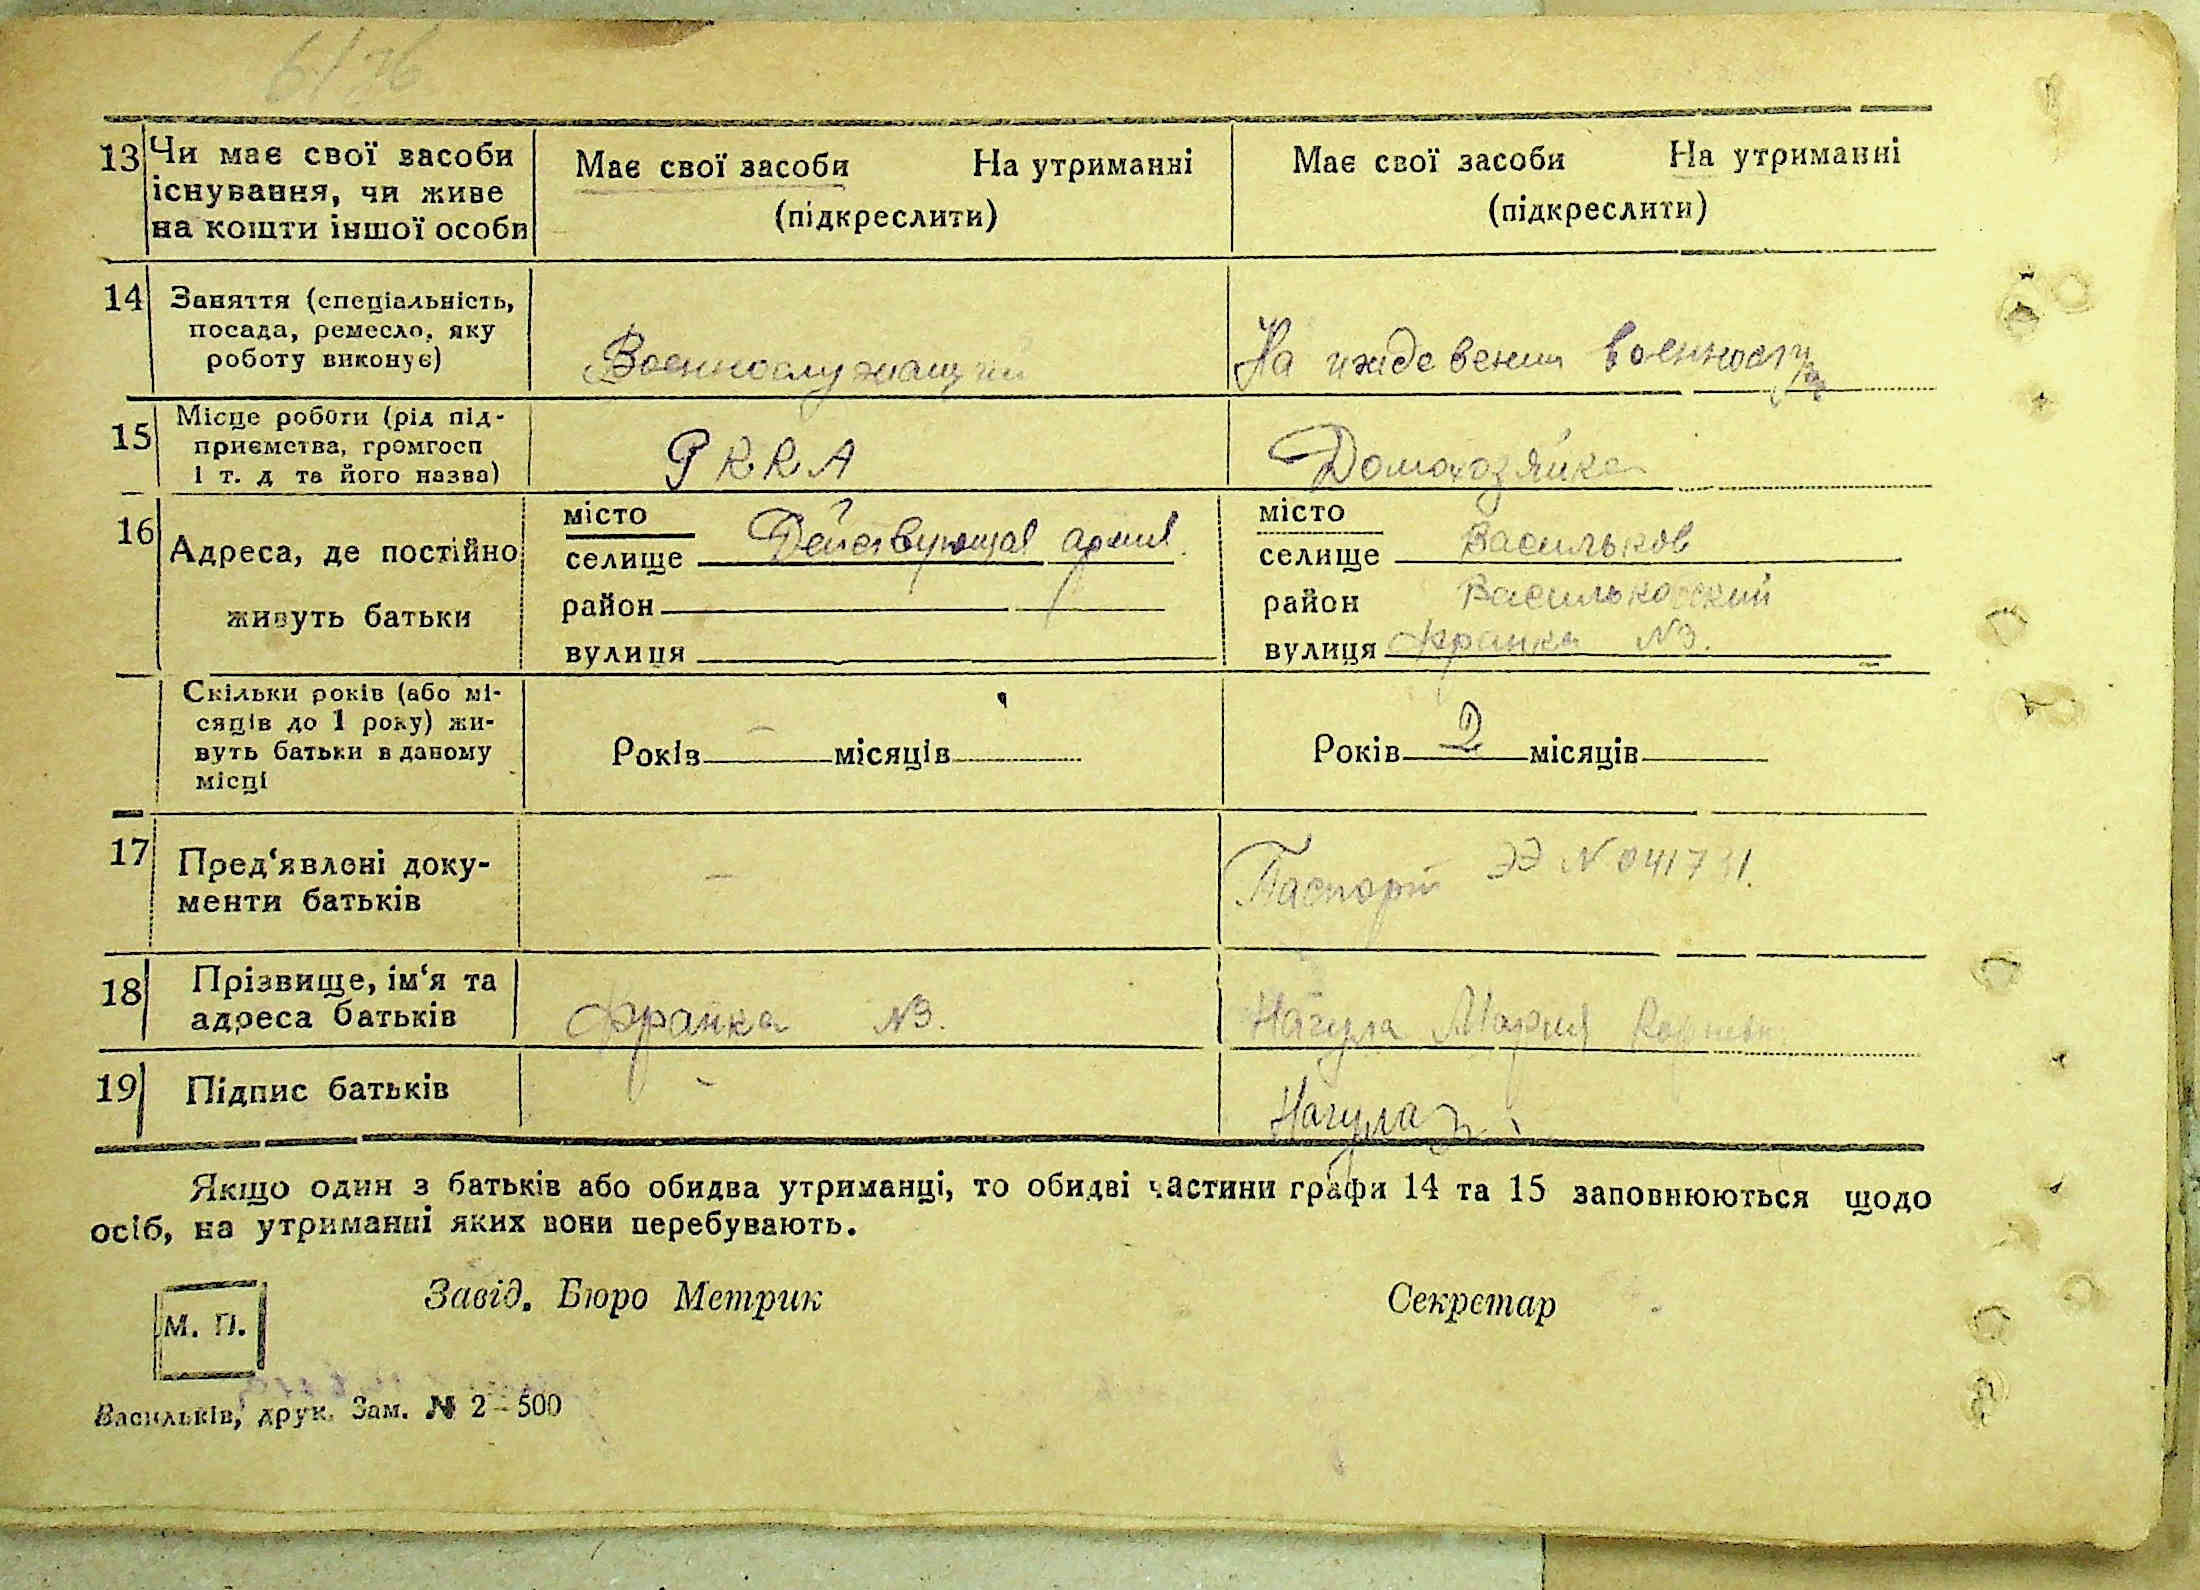 6/26
13 Чи має свої засоби
існування, чи живе
на кошти іншої особи
Має свої засоби На утриманні
(підкреслити)
Має свої засоби На утриманні
(підкреслити)
14 Заняття (спеціальність,
посада, ремесло, яку
роботу виконує)
Военнослужащий
На иждевении
15 Місце роботи (рід під-
приємства, громгосп
і т. д та його назва)
РККА
Домохозяйка
16 Адреса, де постійно
живуть батьки
місто
селище Действующая армия.
район
вулиця
місто
селище Васильков
район Васильковский
вулиця Франка №3.
Скільки років (або мі-
сяців до 1 року) жи-
вуть батьки в даному
місці
Років — місяців
Років 2 місяців
17 Пред‘явлені доку-
менти батьків
—
Паспорт ЭЭ №
18 Прізвище, ім‘я та
адреса батьків
Франка №3.
Нагула Мария
19 Підпис батьків
Нагула
Якщо один з батьків або обидва утриманці, то обидві частини графи 14 та 15 заповнюються щодо
осіб, на утриманні яких вони перебувають.
Завід. Бюро Метрик Секретар
М. П.
Васильків, друк. Зам. № 2–500